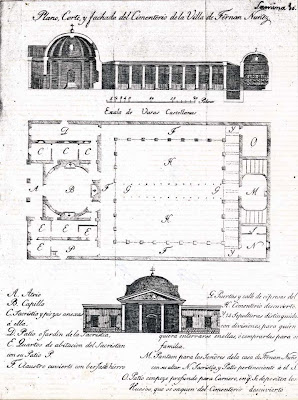 Lamina 3ª.
Plano, Corte, y fachada del Cementerio de la Villa de Fernan Nuñez
Escala de Varas Castellanas
D F Y O
C C C E H
A B F G G M
E E E P H
F Y N
A. Atrio
B. Capilla
C. Sacristia y piezas anexas
á ella.
D. Patio ó Jardin de la Sacristia.
E. Quartos de abitacion del Sacristan
con su Patio P
F. Claustro cuvierto con berjas de hierro
G. Puertas y calle de cipreses del
H. Cementerio descuvierto.
Y. Sepulturas distinguidas
con divisiones para quien
quiera enterrarse en ellas ó comprarlas para su
familia.
M. Panteon para los Señores de la casa de Fernan Nuñez
con su altar N. Sacristia, y Patio perteneciente á el
O. Patio con pozo profundo para Carnero, en q.e se depositan los
Huesos, que se saquen del Cementerio descuvierto